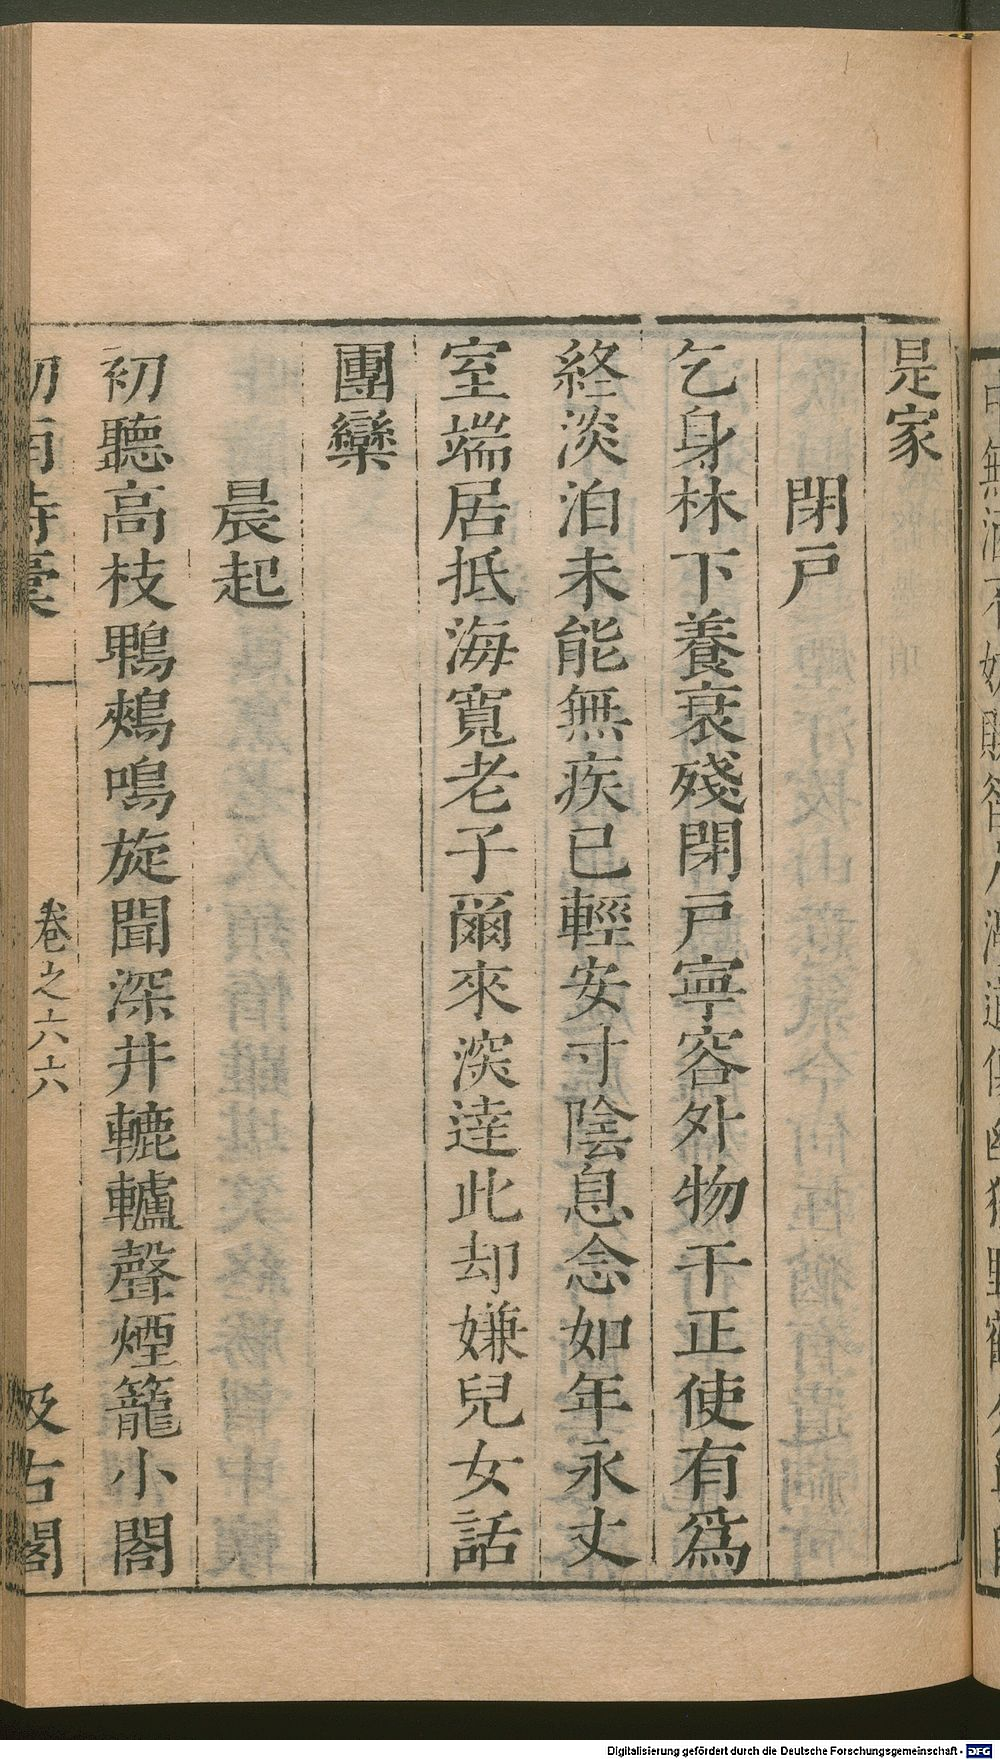 是家
閉戶
乞身林下養衰殘閉戶寧容外物干正使有爲
終淡泊未能無疾已輕安寸陰息念如年永丈
室端居抵海寬老子爾來深達此却嫌兒女話
團欒
晨起
初聽高枝鵯鵊鳴旋聞深井轆轤聲煙籠小閣
劍南詩稾
卷之六六
汲古閣
Digitalisierung gefördert durch die Deutsche Forschungsgemeinschaft - DFG